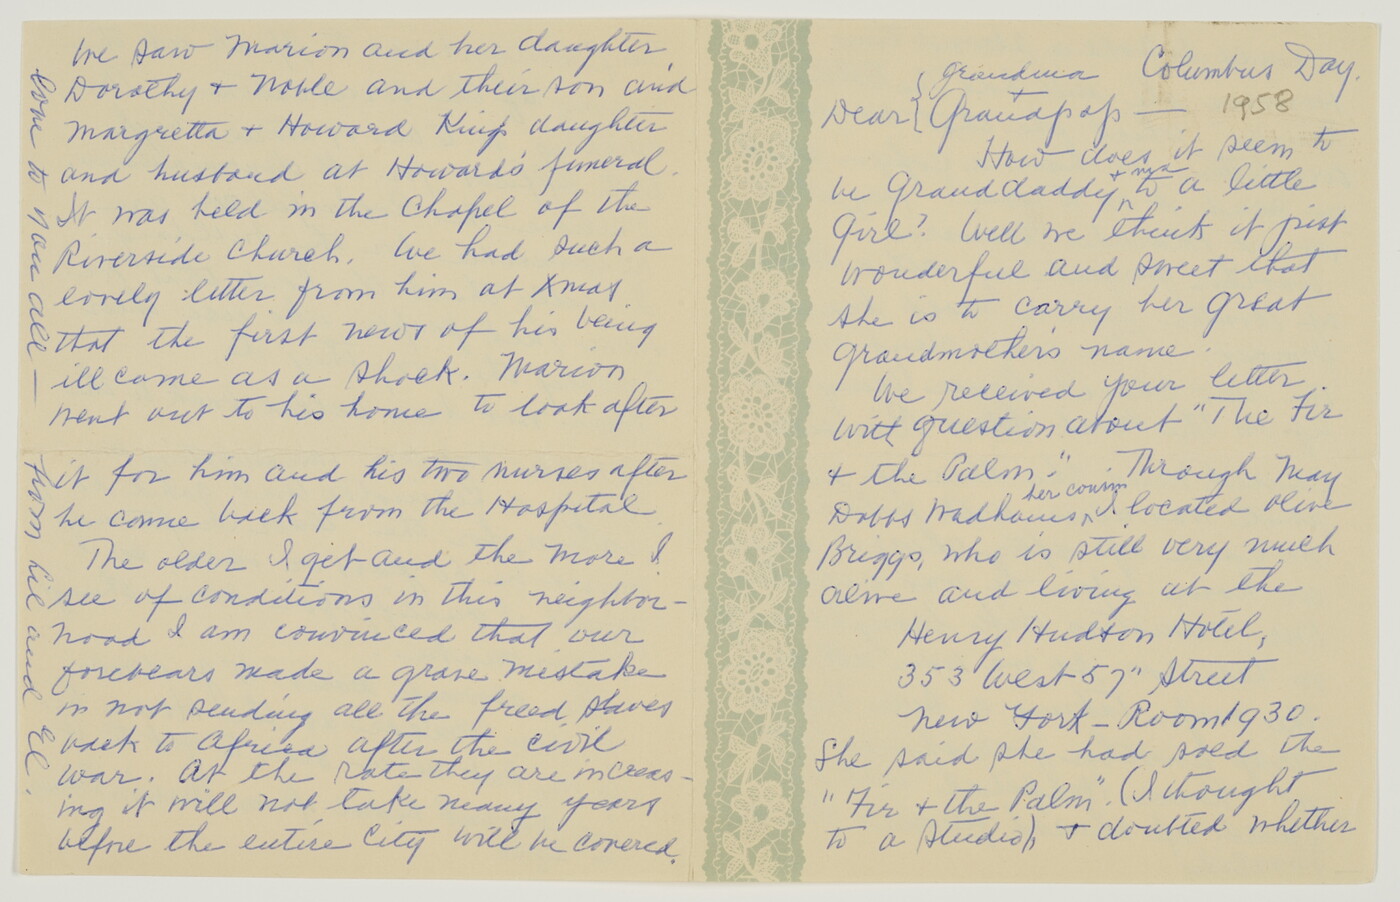 Columbus Day.
1958
Dear { Grandma
+
Grandpop —
How does it seem to
be Granddaddy + ma to a little
Girl? Well we think it just
wonderful and sweet that
she is to carry her great
grandmother's name.
We received your letter
with question about "The Fir
+ the Palm." Through May
Dobbs Wadhams, her cousin, I located Olive
Briggs, who is still very much
alive and living at the
Henry Hudson Hotel,
353 West 57" Street
New York – Room 1930.
She said she had sold the
"Fir + the Palm". (I thought
to a studio), + doubted whether
We saw Marion and her daughter
Dorothy + Noble and their son and
Margretta + Howard King's daughter
and husband at Howard's funeral.
It was held in the Chapel of the
Riverside Church. We had such a
lovely letter from him at Xmas
that the first news of his being
ill came as a shock. Marion
went out to his home to look after
it for him and his two nurses after
he came back from the Hospital.
The older I get and the more I
see of conditions in this neighbor-
hood I am convinced that our
forebears made a grave mistake
in not sending all the freed slaves
back to Africa after the civil
war. At the rate they are increas-
ing it will not take many years
before the entire City will be covered.
Love to you all —
from Lil and El.